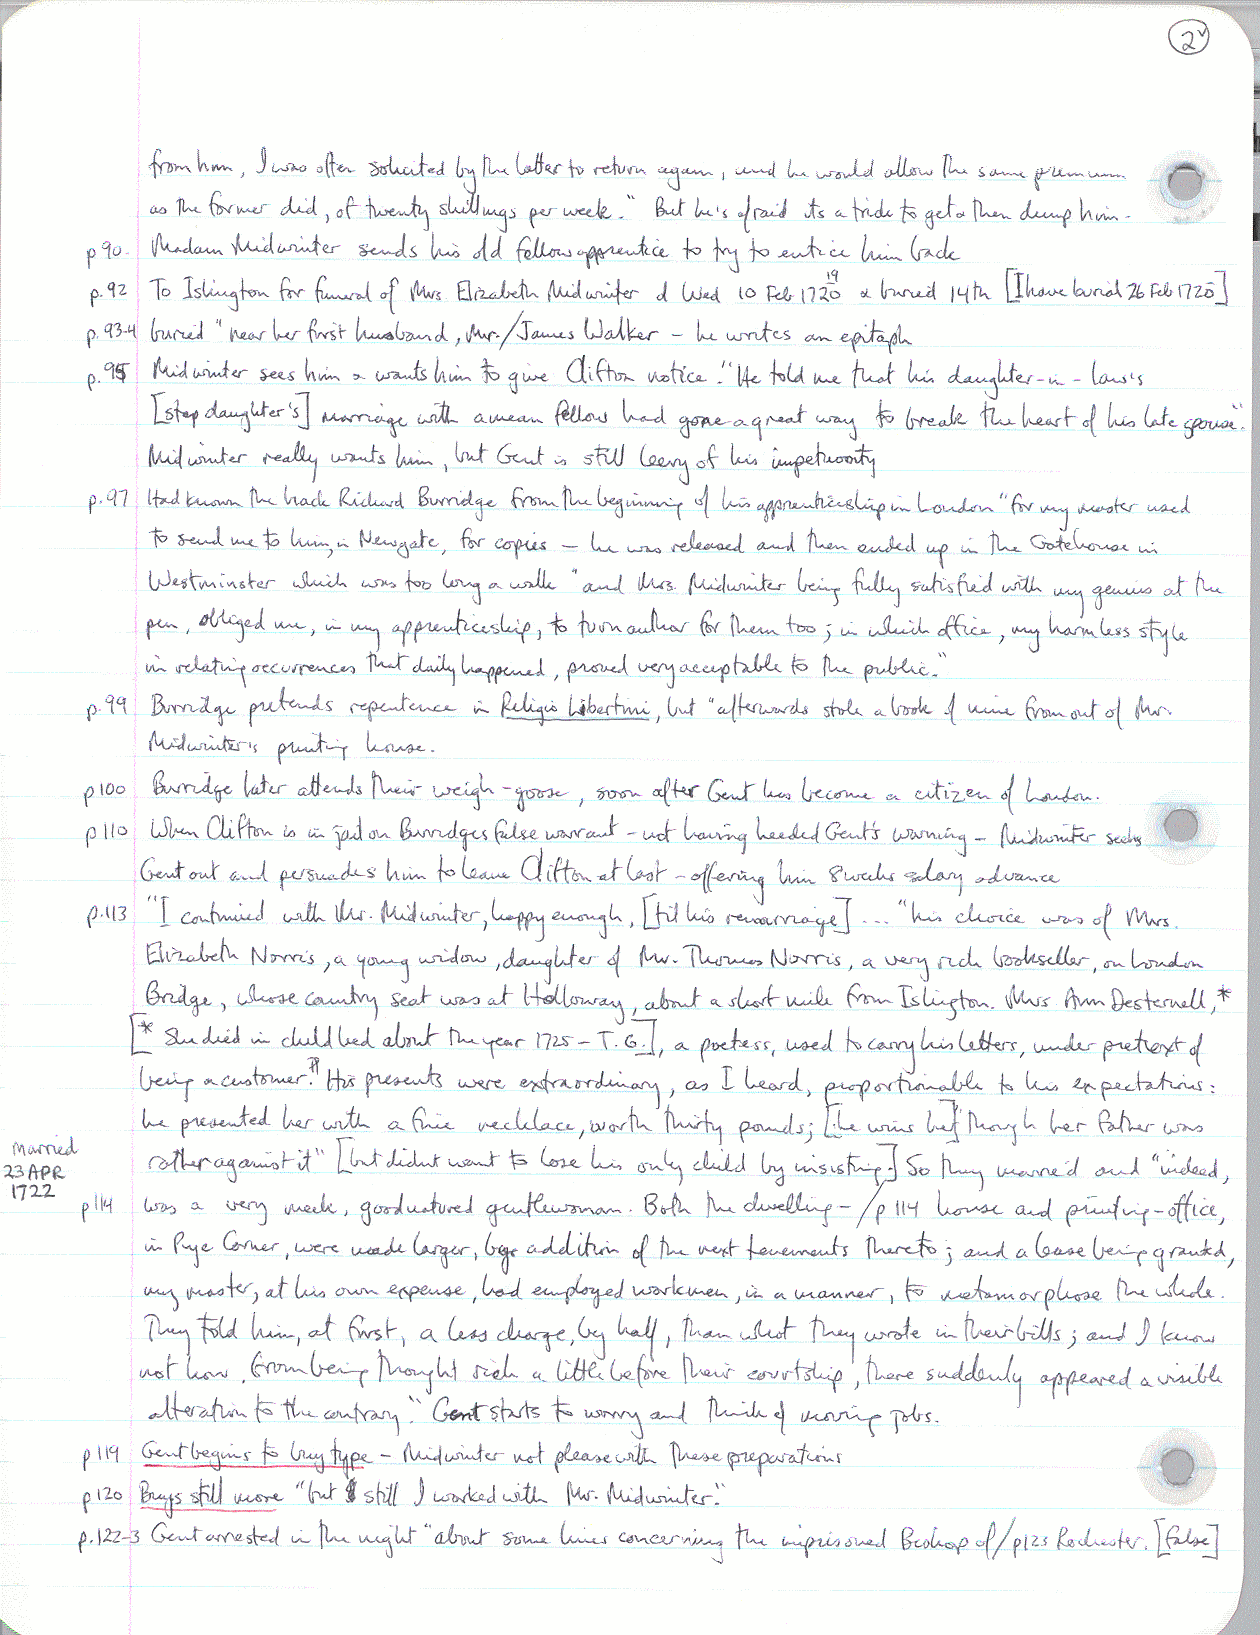 2v
from him, I was often solicited by the latter to return again, and he would allow the same premium
as the former did, of twenty shillings per week." But he's afraid its a trick to get & then dump him -
p 90. Madam Midwinter sends his old fellow apprentice to try to entice him back
p. 92 To Islington for funeral of Mrs. Elizabeth Midwinter d Wed 10 Feb 1720 19 & buried 14th [I have burial 26 Feb 1720]
p. 93-4 buried "near her first husband, Mr./James Walker - he writes an epitaph
p. 95 Midwinter sees him & wants him to give Clifton notice. "He told me that his daughter-in-law's
[step daughter's] marriage with a mean fellow had gone a great way to break the heart of his late spouse".
Midwinter really wants him, but Gent is still leery of his impetuosity
p. 97 Had known the hack Richard Burridge from the beginning of his apprenticeship in London "for my master used
to send me to him, in Newgate, for copies - he was released and then ended up in the Gatehouse in
Westminster which was too long a walk "and Mrs. Midwinter being fully satisfied with my genius at the
pen, obliged me, in my apprenticeship, to turn author for them too; in which office, my harmless style
in relating occurrences that daily happened, proved very acceptable to the public."
p. 99 Burridge pretends repentence in Religio Libertini, but "afterwards stole a book of mine from out of Mr.
Midwinter's printing house.
p 100 Burridge later attends their weigh-goose, soon after Gent has become a citizen of London.
p 110 When Clifton is in jail on Burridges false warrant - not having heeded Gent's warning - Midwinter seeks
Gent out and persuades him to leave Clifton at last - offering him 8 weeks salary advance
p. 113 "I continued with Mr. Midwinter, happy enough, [til his remarriage] ... "his choice was of Mrs.
Elizabeth Norris, a young widow, daughter of Mr. Thomas Norris, a very rich bookseller, on London
Bridge, whose country seat was at Holloway, about a short mile from Islington. Mrs Ann Desternell,*
[* She died in child bed about the year 1725 - T. G.], a poetess, used to carry his letters, under pretext of
being a customer." His presents were extraordinary, as I heard, proportionable to his expectations:
he presented her with a fine necklace, worth thirty pounds; [he wins her] "though her father was
married
23 APR
1722
rather against it" [but didn't want to lose his only child by insisting.] So they married and "indeed,
p 114 was a very meek, goodnatured gentlewoman. Both the dwelling-/p 114 house and printing-office,
in Pye Corner, were made larger, by addition of the next tenements thereto; and a lease being granted,
my master, at his own expense, had employed workmen, in a manner, to metamorphose the whole.
They told him, at first, a less charge, by half, than what they wrote in their bills; and I know
not how, from being thought rich a little before their courtship, there suddenly appeared a visible
alteration to the contrary." Gent starts to worry and think of moving jobs.
p 119 Gent begins to buy type - Midwinter not please with these preparations
p 120 Buys still more "but still I worked with Mr. Midwinter."
p. 122-3 Gent arrested in the night "about some lines concerning the imprisoned Bishop of/p123 Rochester. [false]